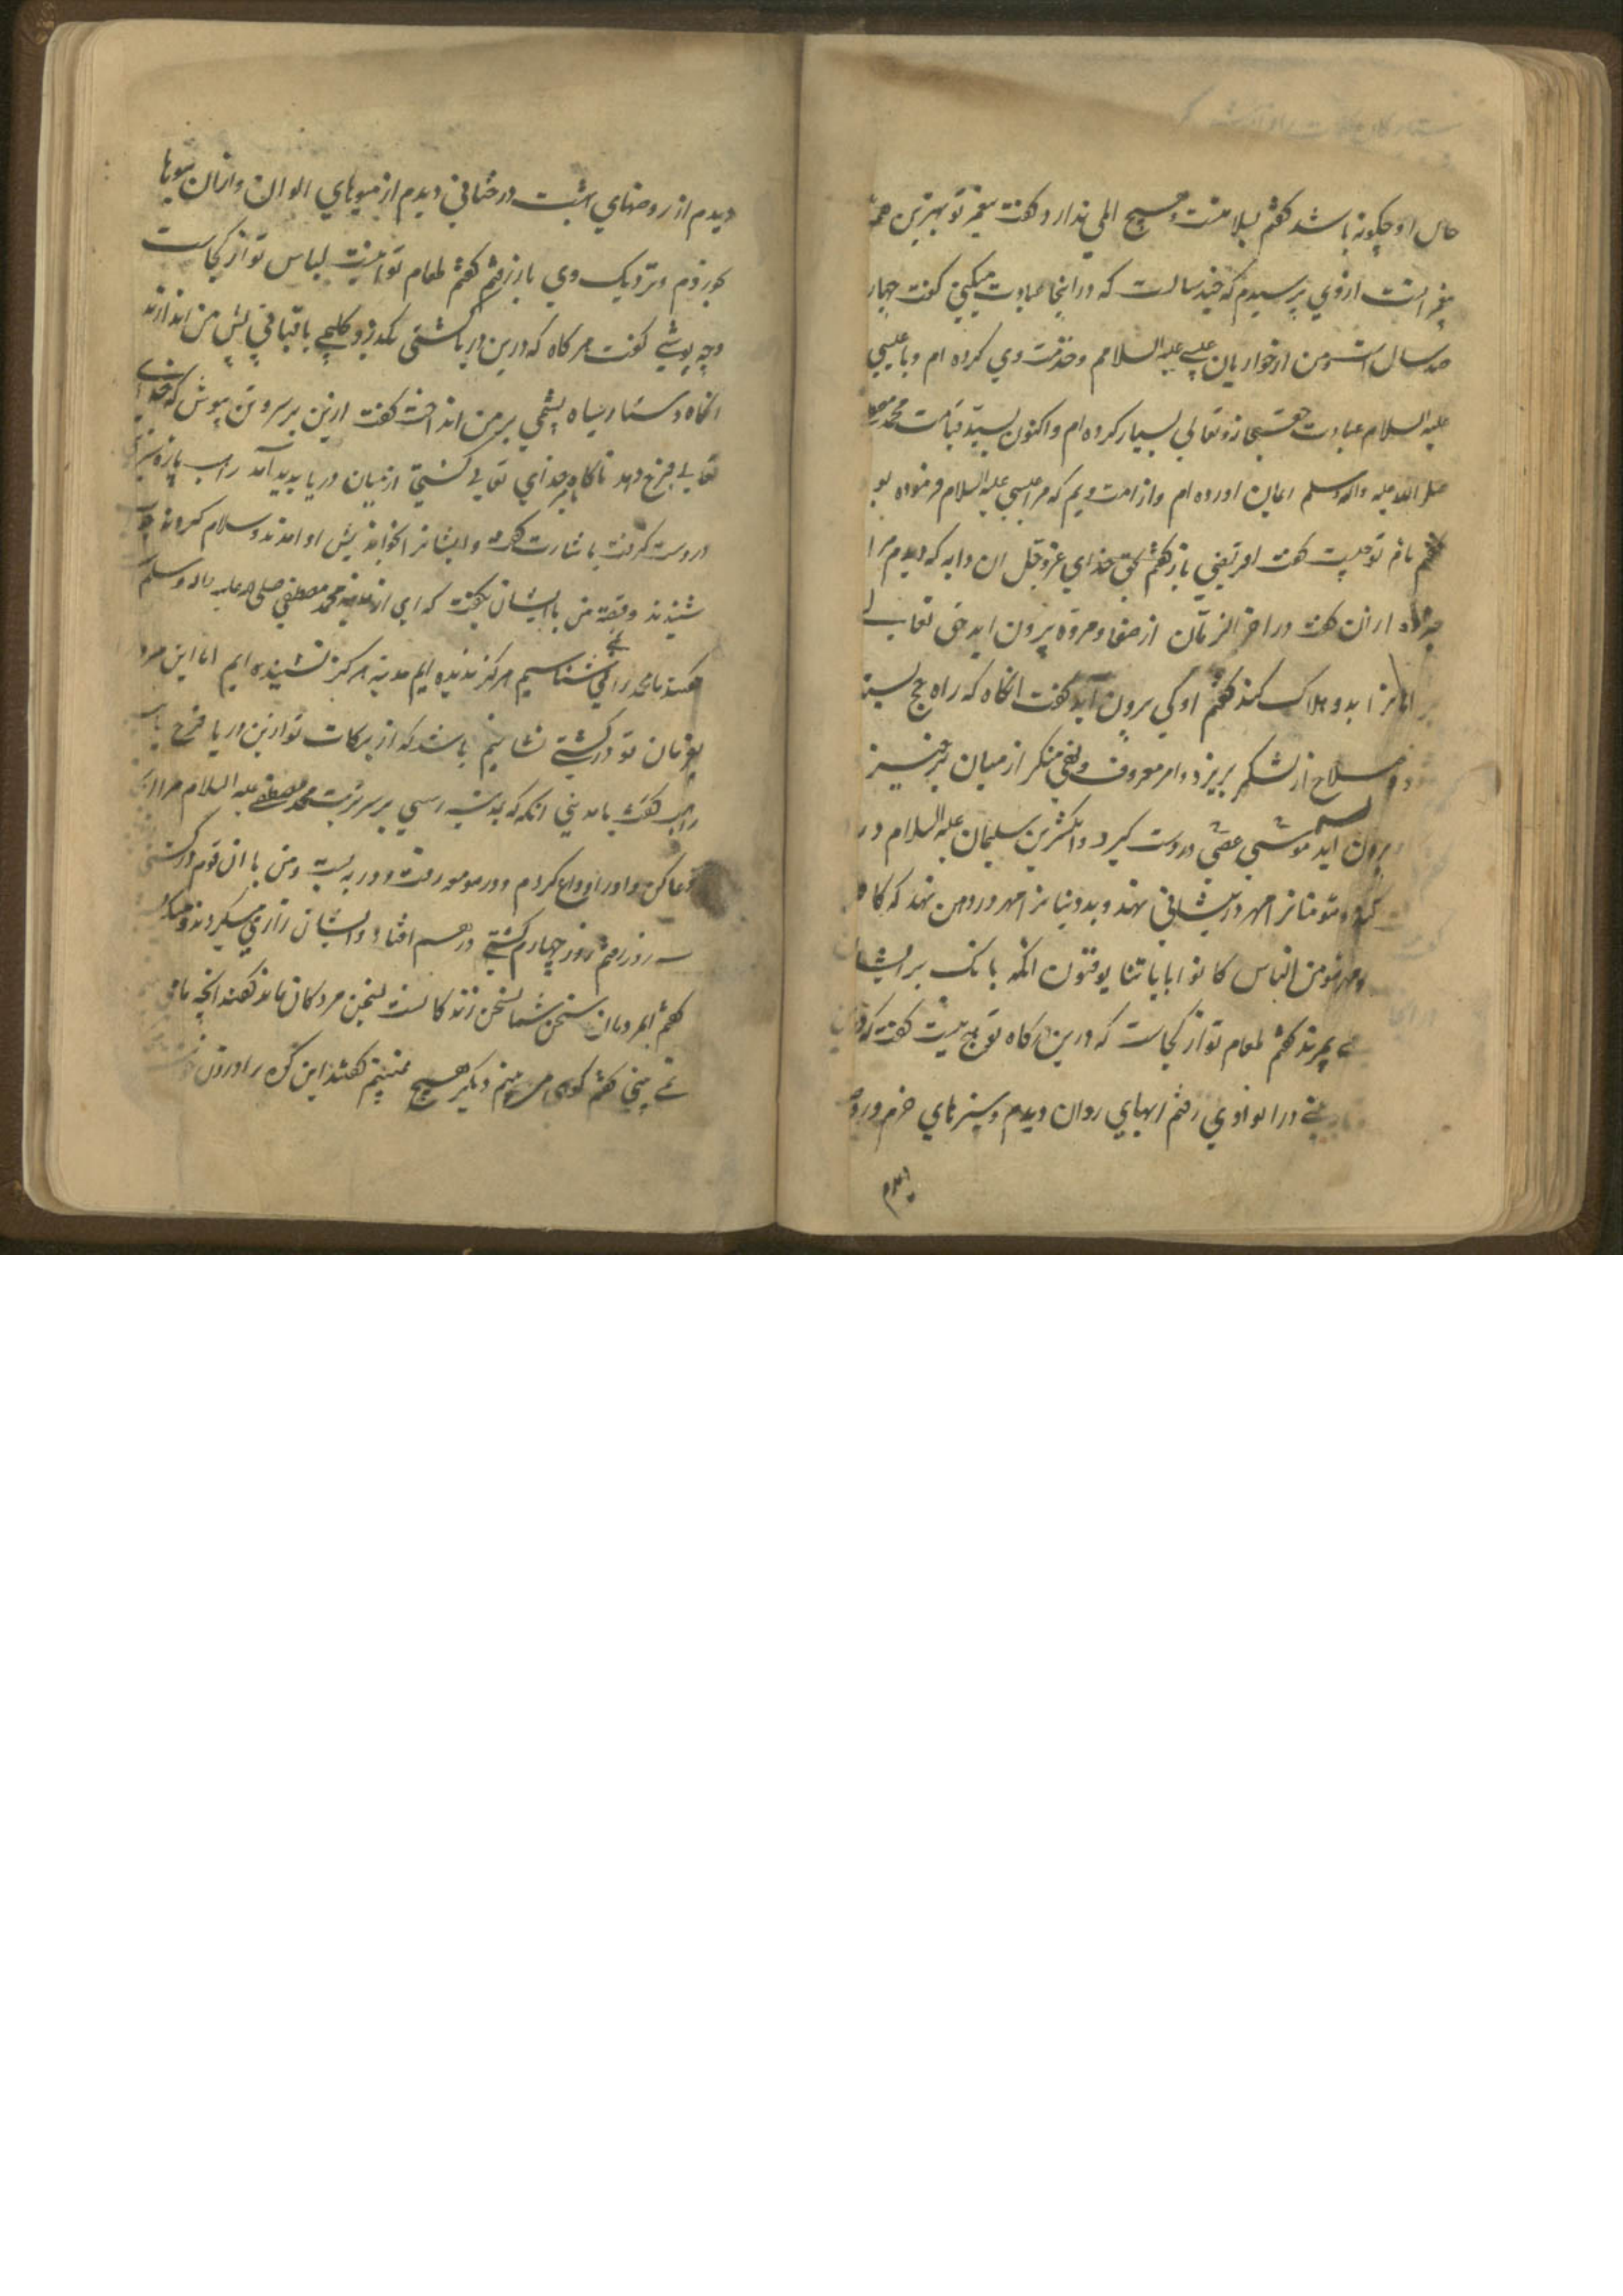 حال او چکونه باشد کفتم بسلامتست و هیچ المی ندارد کفت پیغمبر تو بهترین همه
پیغمبرانست از وی پرسیدم که چند سالست که در اینجا عبادت میکنی کفت چهار
صد سال است و من از حواریان عیسی علیه السلامم و خدمت وی کرده ام و با عیسی
علیه السلام عبادت حق سبحانه و تعالی بسیار کرده ام و اکنون بسید قیامت محمد مصطفی
صلی الله علیه واله وسلم ایمان اورده ام و از امت ویم که مرا عیسی علیه السلام فرموده بود
کفتم نام تو چیست کفت باز کفتم بحق خدای عز و جل ان دابه که دیدم مرا
خبر ده از ان کفت در اخر الزمان از صفا و مروه بیرون اید حق تعالی
هلاک کند کفتم او کی برون آید کفت انکاه که راه حج بسته
شود و سلاح از لشکر بریزد و امر معروف و نهی منکر از میان برخیزد
برون آید موسی عصی در دست کیرد و انکشترین سلیمان علیه السلام در
و مومنانرا مهر در پیشانی نهد و بددینانرا مهر در دهن نهد که کاه
من الناس کانوا بایاتنا یوقنون انکه بانک بر ایشان
بمیرند کفتم طعام تو از کجاست که درین درکاه تو هیچ نیست کفت که درین
در ان وادی رفتم ابهایی روان دیدم و سبزهای خرم و روضه
دیدم
دیدم از روضهای بهشت درختانی دیدم از میوهای الوان و ازان میوها
بخوردم و نزدیک وی باز رفتم کفتم طعام تو اینست لباس تو از کجاست
و چه پوشی کفت هر کاه که درین دریا کشتی بکدرد کلیمی یا قبایی پیش من اندازند
انکاه دستار سیاه پشمی بر من انداخت کفت ازین بر سر و تن بپوش که خدای
تعالی فرج دهد ناکاه خدای تعالی کشتی از میان دریا بدید آمد راهب پاره
در دست کرفت باشارت کرد و ایشانرا بخواند پیش او امدند و سلام کردند
شنیدند و قصه من با ایشان بکفت که این از مدینه محمد مصطفی صلی الله علیه واله وسلم
کفتند ما محمد را نمی شناسیم هرکز ندیده ایم مدینه هرکز نشنیده ایم اما این مرد
بفرمان تو در کشتی نشانیم باشد که از برکات تو ازین دریا فرح یابیم
راهب کفت یا مدینی انکه که بمدینه رسی بر سر تربت محمد مصطفی علیه السلام مرا
دعا کن و او را وداع کردم و در صومعه رفت و در به بست و من با ان قوم در کشتی
سه روز رفتم روز چهارم کشتی درهم افتاد و ایشان زاری میکردند و میکفتند
کفتم ایمردمان سخن شما بسخن زندکا نست بسخن مردکان ماند کفتند انچه ما می
نمی بینی کفتم کوهی می بینم دیکر هیچ نمی بینم کفتند این کوه را